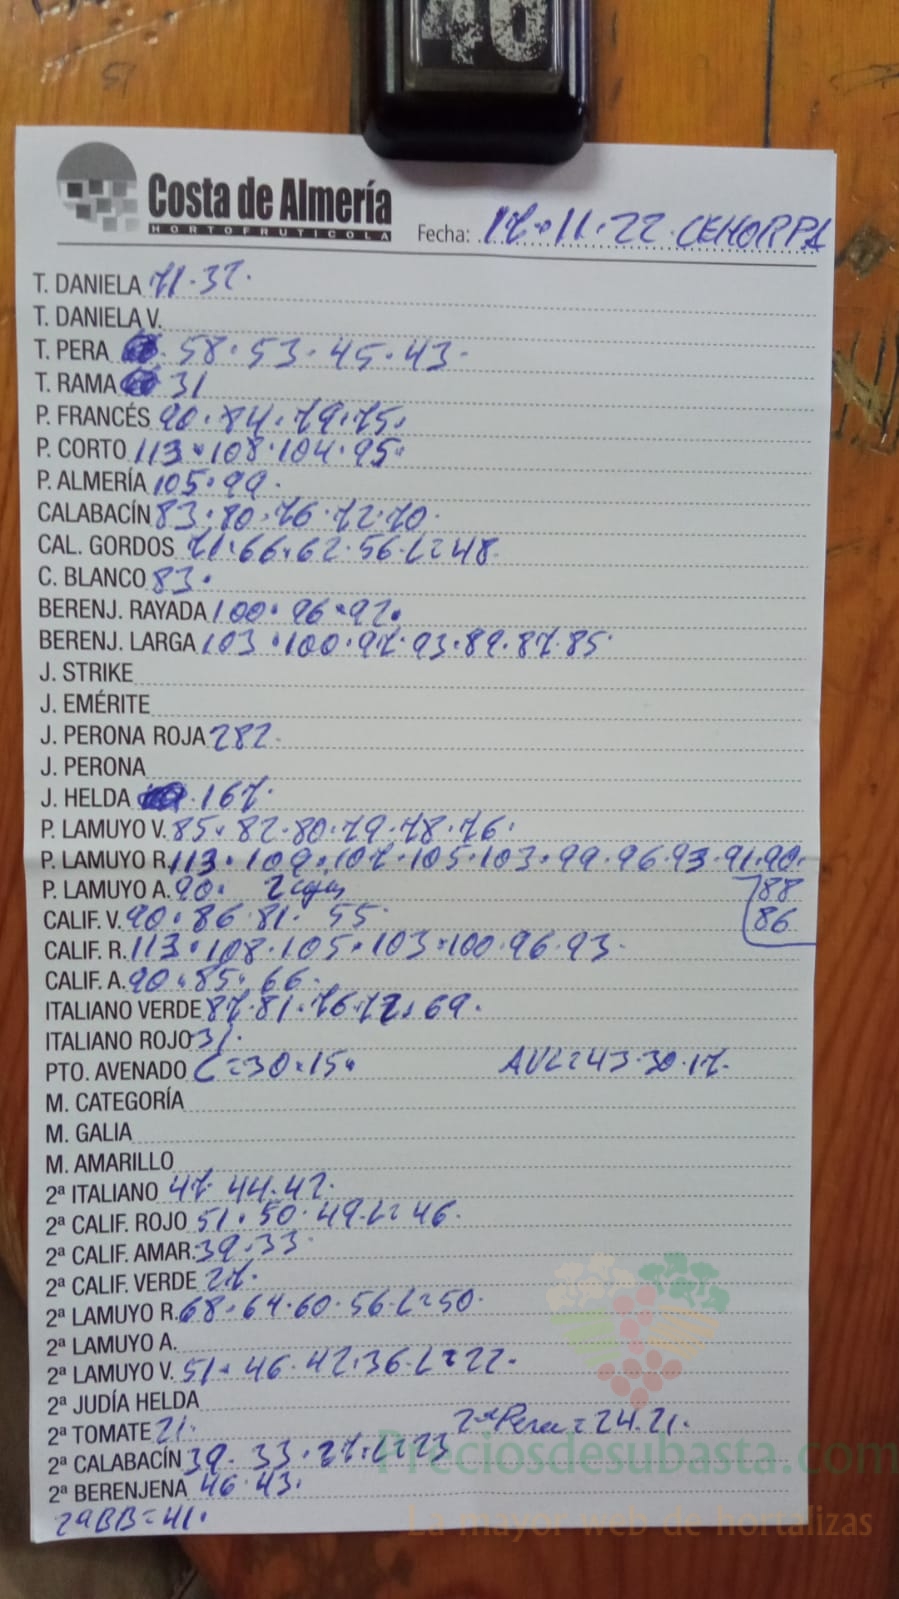 Costa de Almería
HORTOFRUTICOLA
Fecha: 17.11.22 CEHORPA
T. DANIELA 71.37.
T. DANIELA V.
T. PERA 58.53.45.43.
T. RAMA 31
P. FRANCÉS 90.84.79.75.
P. CORTO 113.108.104.95.
P. ALMERÍA 105.99.
CALABACÍN 83.80.76.72.70.
CAL. GORDOS 71.66.62.56.L=48
C. BLANCO 83.
BERENJ. RAYADA 100.96.92.
BERENJ. LARGA 103.100.97.93.89.87.85
J. STRIKE
J. EMÉRITE
J. PERONA ROJA 282.
J. PERONA
J. HELDA 167.
P. LAMUYO V. 85.82.80.79.78.76.
P. LAMUYO R. 113.109.107.105.103.99.96.93.91.90.
88
P. LAMUYO A. 90. 2 cajas
86
CALIF. V. 90.86.81. 55.
CALIF. R. 113.108.105.103.100.96.93.
CALIF. A. 90.85.66.
ITALIANO VERDE 87.81.76.72.69.
ITALIANO ROJO 31.
PTO. AVENADO C=30.15. AVL=43.30.17.
M. CATEGORÍA
M. GALIA
M. AMARILLO
2ª ITALIANO 47.44.42.
2ª CALIF. ROJO 51.50.49.L=46.
2ª CALIF. AMAR. 39.33.
2ª CALIF. VERDE 27.
2ª LAMUYO R. 68.64.60.56.L=50.
2ª LAMUYO A.
2ª LAMUYO V. 51.46.42.36.L=22.
2ª JUDÍA HELDA
2ª TOMATE 21. 2ª Pera=24.21.
2ª CALABACÍN 39.33.27.L=23
2ª BERENJENA 46.43.
2ªBB=41.
Preciosdesubasta.com
La mayor web de hortalizas